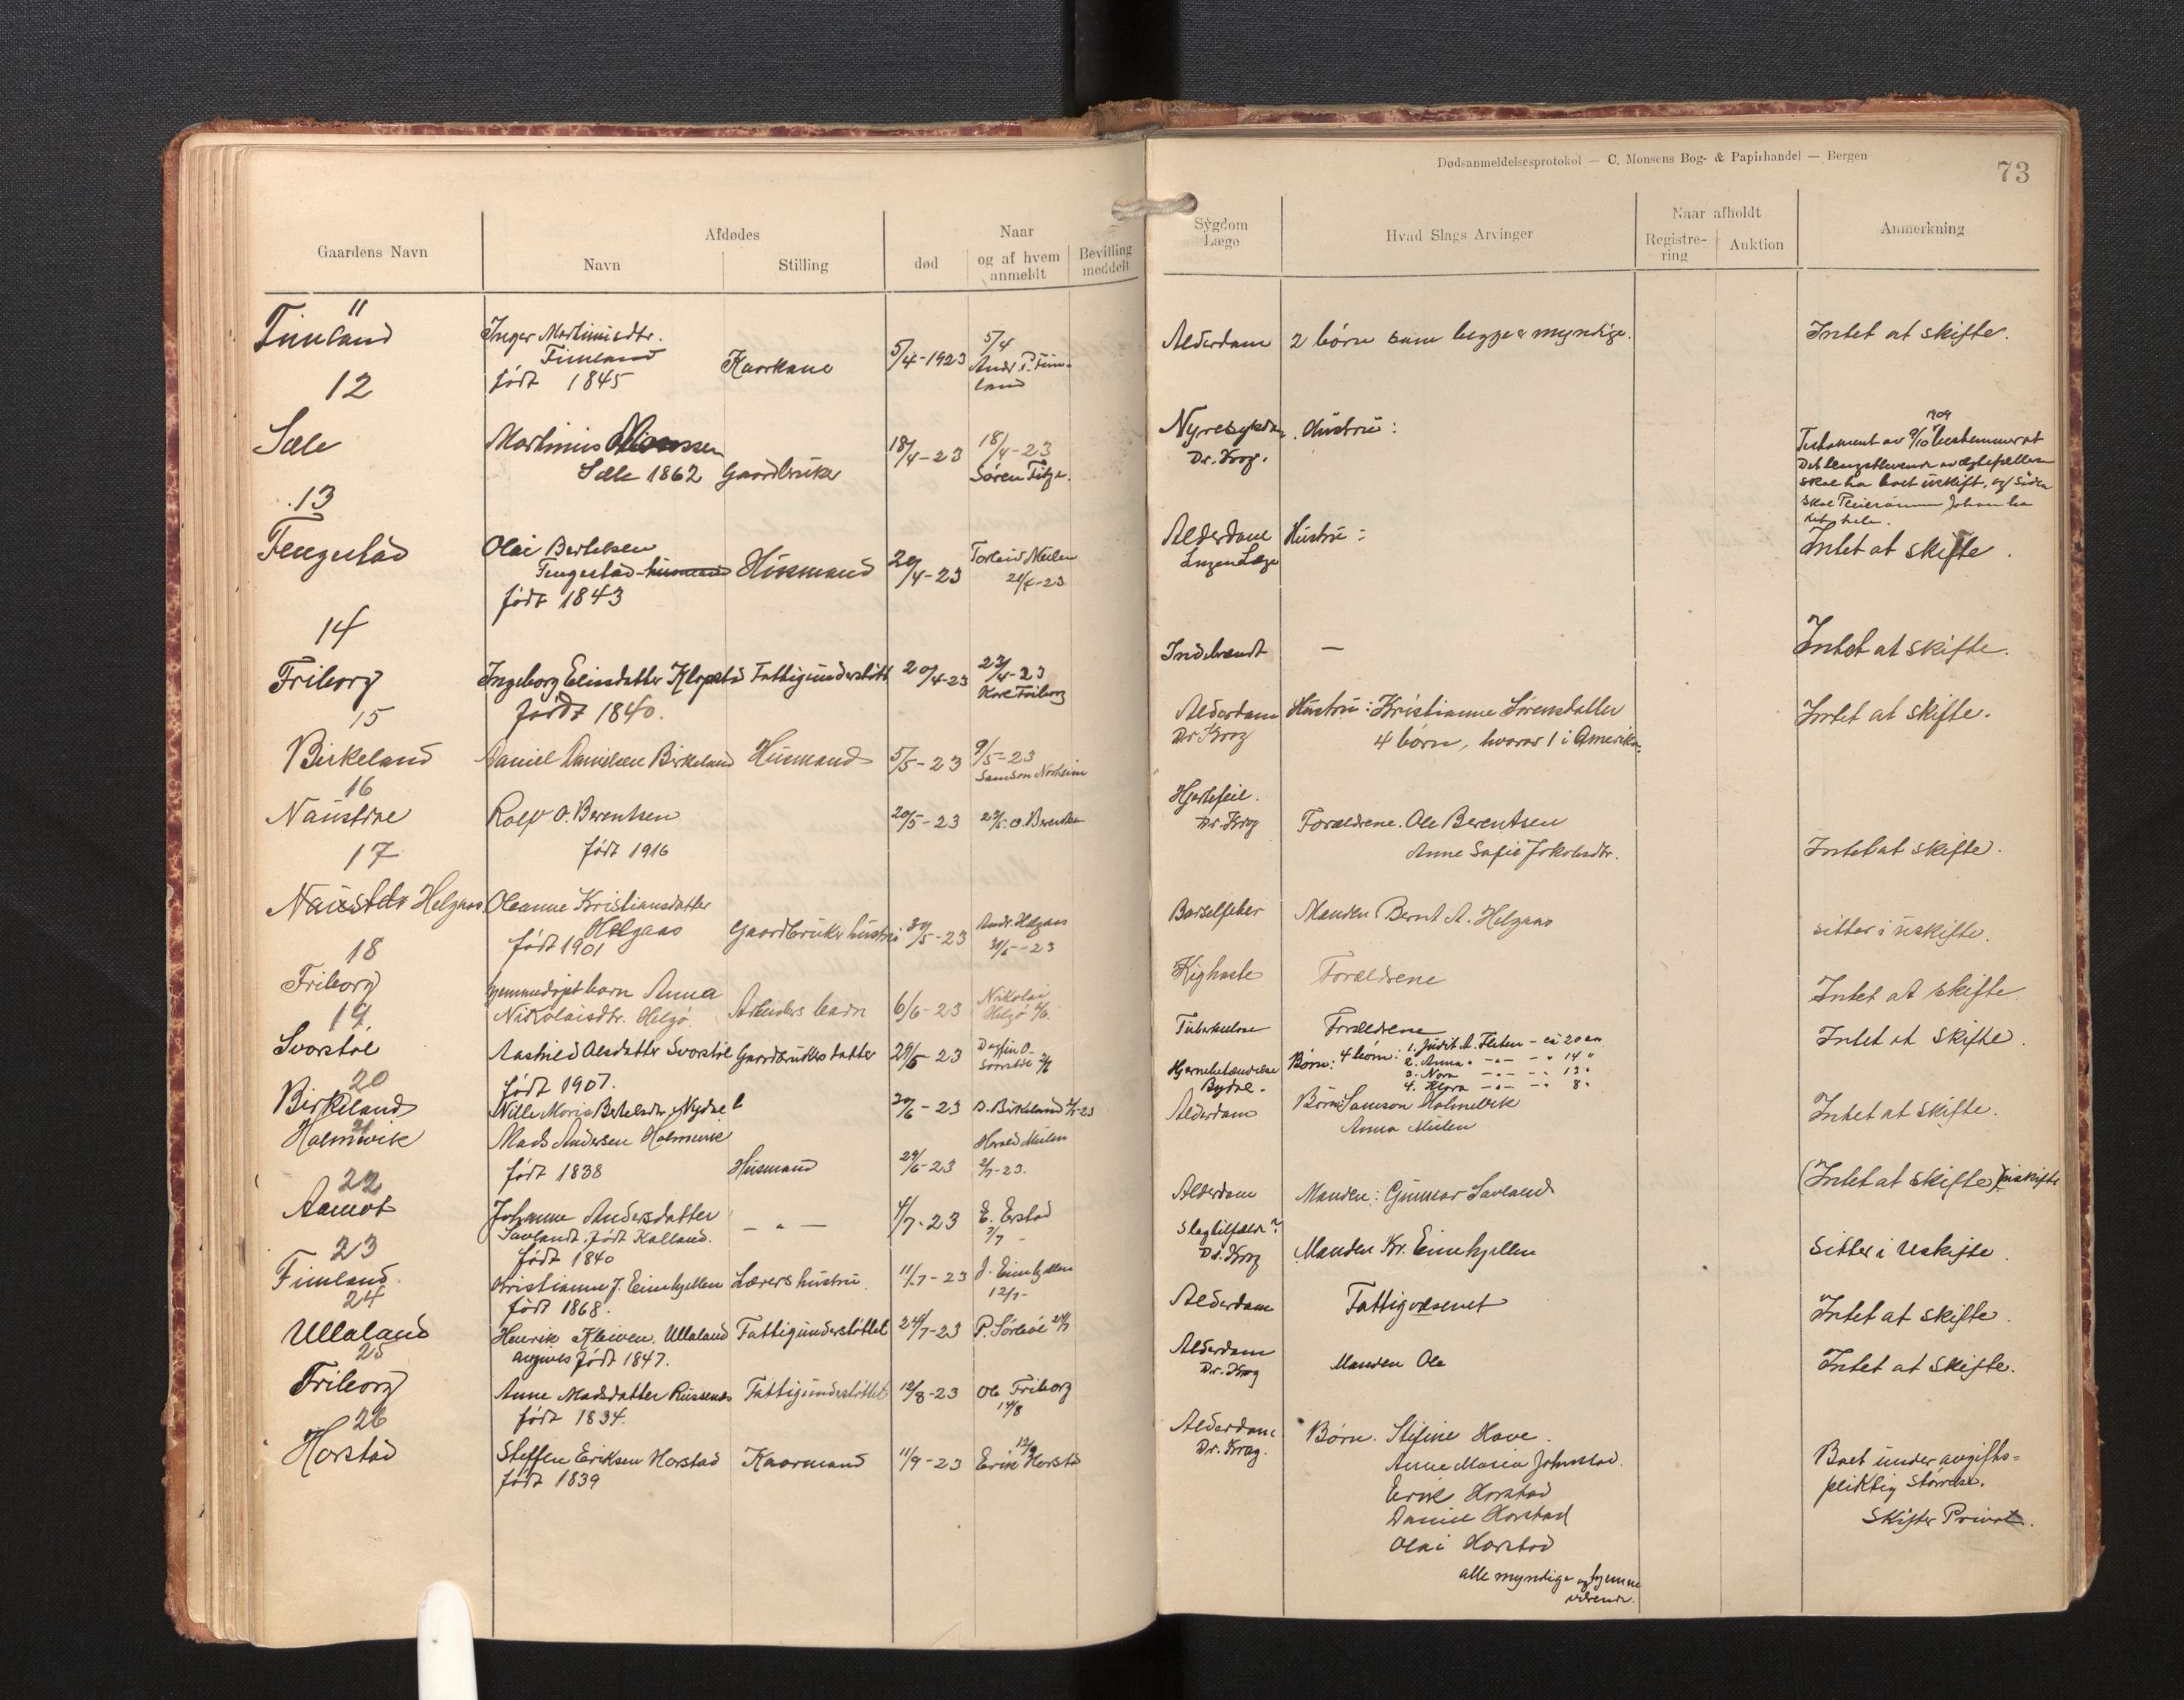 Dødsanmeldelsesprotokol — C. Monsens Bog- & Papirhandel — Bergen
73
Gaardens Navn
Afdødes
Navn
Stilling
Naar
død
og af hvem anmeldt
Bevilling meddelt
Sygdom
Læge
Hvad Slags Arvinger
Naar afholdt
Registre-
ring
Auktion
Anmerkning
11
Timland
Inger Martinusdtr.
Timland
født 1845
Kaarkone
5/4-1923
5/4
Andr. P. Tim-
land
Alderdom
2 børn som begge er myndige.
Intet at skifte.
12
Sæle
Martinus
Sæle 1862
Gaardbruker
18/4-23
18/4-23
Søren
Nyresykdom
Dr. Krog.
Hustru:
1909
Testament av 9/10 bestemmer at
Det lengstlevende av ægtefællene
skal ha boet uskift, og siden
skal Johan ha
det hele.
13
Tengestad
Olai Bertelsen
Tengestad husmand
født 1843
Husmand
20/4-23
Torleiv Meilen
21/4-23
Alderdom
Ingen Læge
Hustru:
Intet at skifte.
14
Friborg
Ingeborg Eliasdatter Klopstad
født 1840.
Fattigunderstøtt
20/4-23
23/4-23
Kore Friborg
Indebrændt
—
Intet at skifte.
15
Birkeland
Daniel Danielsen Birkeland
Husmand
5/5-23
9/5-23
Samson Norheim
Alderdom
Dr Krog
Hustru: Kristianne Sørensdatter
4 børn, hvorav 1 i Amerika.
Intet at skifte.
16
Naustdal
Rolf O. Berentsen
født 1916
20/5-23
O. Berentsen
Hjertefeil.
Dr. Krog
Forældrene. Ole Berentsen
Anne Sofie Jakobsdtr.
Intet at skifte.
17
Naustdal Helgaas
Oleanne Kristiansdatter
Helgaas
født 1901
Gaardbruker hustru
30/5-23
Andr. Helgaas
31/5-23
Barselfeber
Manden Bernt A. Helgaas
sitter i uskifte.
18
Friborg
hjemmedøpt barn Anna
Nikolaisdtr. Helgø.
Arbeiders barn
6/6-23
Nikolai
Helgø
Kighoste
Forældrene
Intet at skifte.
19
Svorstøl
Aastrid Olsdatter Svorstøl
født 1907.
Gaardbrukers datter
29/5-23
Dagfin O.
Svorstøl
Tuberkulose
Forældrene
Intet at skifte.
20
Birkeland
Nille Moris Bertelsdtr. Nydal
20/6-23
D. Birkeland
Hjernebetændelse
Bydal.
Børn: 4 børn: 1. Judit A. Fleten - ei 20 aar
2. Anna " —"— " 14 "
3. Nora —"— " 13 "
4. Klara —"— " 8 "
21
Holmevik
Mads Andersen Holmevik
født 1838
Husmand
29/6-23
Harald Meilen
2/7-23.
Alderdom
Børn: Samson Holmevik
Anna Meilen
Intet at skifte.
22
Aamot
Johanne Andersdatter
Savland. født Kalland.
født 1840
— " —
4/7-23
E. Erstad
7/7
Alderdom
Manden: Gunnar Savland
(Intet at skifte) uskifte
23
Timland
Kristianne J. Eimhjellen
født 1868.
Lærers hustru
11/7-23
J. Eimhjellen
12/7-
Slagtilfælde?
Dr. Krog
Manden Kr. Eimhjellen
Sitter i Uskifte.
24
Ullaland
Henrik Kleiven, Ullaland
angives født 1847.
Fattigunderstøttet
24/7-23
P. Sørbøe 24/7
Alderdom
Fattigvæsenet
Intet at skifte.
25
Friborg
Anne Madsdatter Russenes
født 1834.
Fattigunderstøttet
12/8-23
Ole Friborg
14/8
Alderdom
Dr. Krog
Manden Ole
Intet at skifte.
26
Horstad
Steffen Eriksen Horstad
født 1839
Kaarmand
11/9-23
12/9
Erik Horstad
Alderdom
Dr. Krog.
Børn. Stefine Hove.
Anne Maria Johnstad.
Erik Horstad
Daniel Horstad
Olai Horstad
alle myndige og hjemme
værende.
Boet under avgifts-
pliktig størrelse.
Skifter Privat.